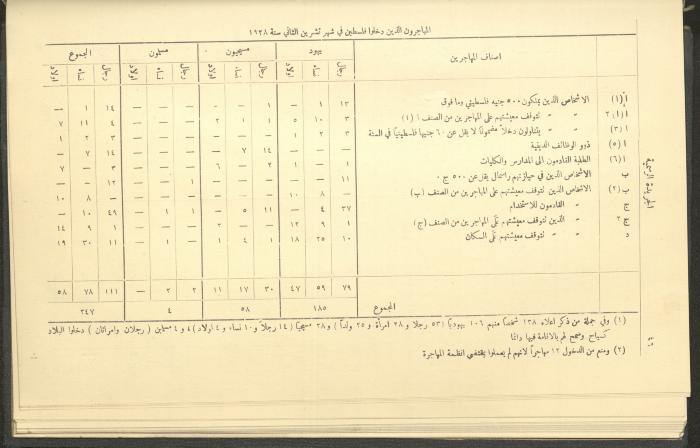 المهاجرون الذين دخلوا فلسطين في شهر تشرين الثاني سنة ١٩٢٨
اصناف المهاجرين | يهود | مسيحيون | مسلمون | المجموع
رجال | نساء | اولاد | رجال | نساء | اولاد | رجال | نساء | اولاد | رجال | نساء | اولاد
أ (١) الاشخاص الذين يملكون ٥٠٠ جنيه فلسطيني وما فوق | ١٣ | ١ | — | ١ | — | — | — | — | — | ١٤ | ١ | —
أ (١) ٢ » » تتوقف معيشتهم على المهاجرين من الصنف أ (١) | ٣ | ١٠ | ٥ | ١ | ١ | ٢ | — | — | — | ٤ | ١١ | ٧
أ (٣) » » يتناولون دخلاً مضموناً لا يقل عن ٦٠ جنيهاً فلسطينياً في السنة | ٣ | ٢ | ١ | — | — | — | — | — | — | ٣ | ٢ | ١
أ (٥) ذوو الوظائف الدينية | — | — | — | ١٤ | ٧ | — | — | — | — | ١٤ | ٧ | —
أ (٦) الطلبة القادمون الى المدارس والكليات | ١ | — | ١ | ٢ | — | ٦ | — | — | — | ٣ | — | ٧
ب الاشخاص الذين في حيازتهم راسمال يقل عن ٥٠٠ ج٠
ب (٢) الاشخاص الذين تتوقف معيشتهم على المهاجرين من الصنف (ب) | — | ٨ | ١٠ | — | — | — | — | — | — | — | ٨ | ١٠
ج » القادمون للاستخدام | ٣٧ | ٤ | — | ١١ | ٥ | — | ١ | ١ | — | ٤٩ | ١٠ | —
ج ٢ » الذين تتوقف معيشتهم على المهاجرين من الصنف (ج) | ١ | ٩ | ١٢ | — | — | ٢ | — | — | — | ١ | ٩ | ١٤
د » » تتوقف معيشتهم على السكان | ١٠ | ٢٥ | ١٨ | ١ | ٤ | ١ | — | ١ | — | ١١ | ٣٠ | ١٩
٧٩ | ٥٩ | ٤٧ | ٣٠ | ١٧ | ١١ | ٢ | ٢ | — | ١١١ | ٧٨ | ٥٨
المجموع | ١٨٥ | ٥٨ | ٤ | ٢٤٧
(١) وفي جملة من ذكر اعلاه ١٣٨ شخصاً منهم ١٠٦ يهودياً (٥٣ رجلا و ٢٨ امرأة و ٢٥ ولداً) و ٢٨ مسيحياً (١٤ رجلاً و ١٠ نساء و ٤ اولاد) و ٤ مسلمين (رجلان وامرأتان) دخلوا البلاد
كسياح وسمح لهم بالاقامة فيها دائما
(٢) ومنع من الدخول ١٢ مهاجراً لانهم لم يعملوا بمقتضى انظمة المهاجرة
الجريدة الرسمية